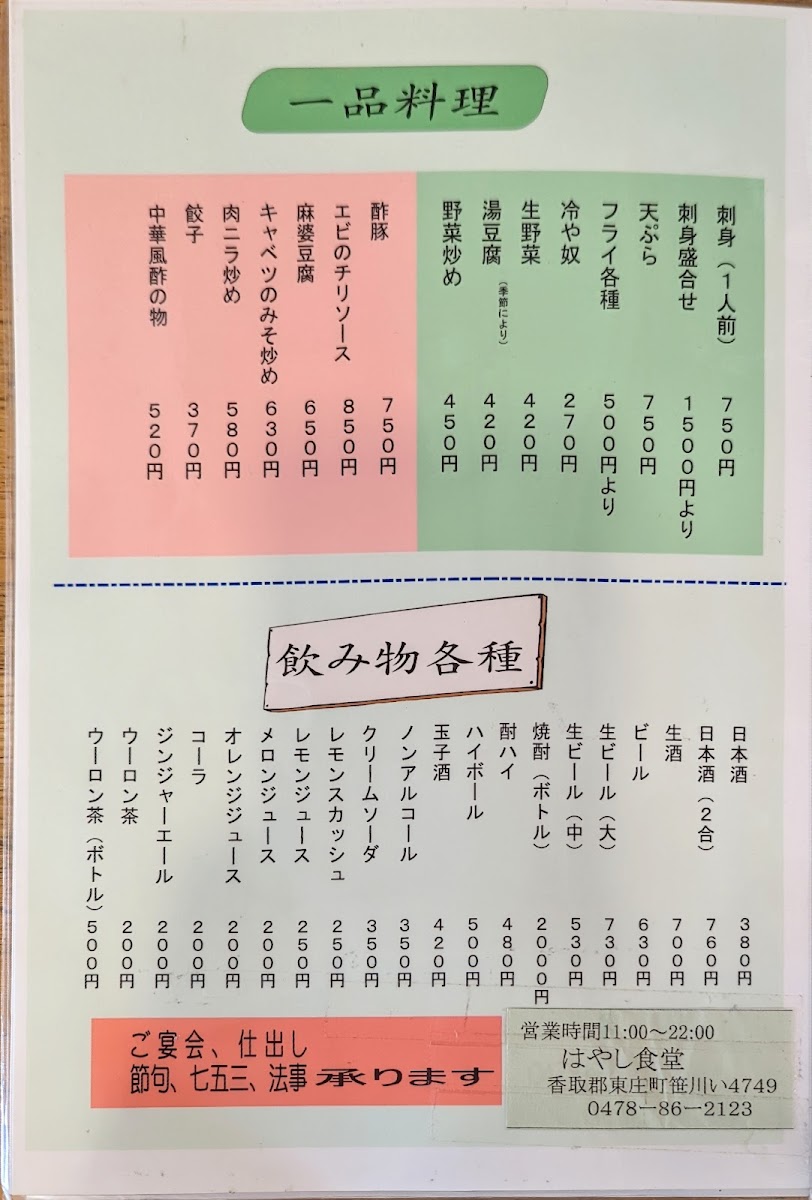 一品料理
刺身（1人前） 750円
刺身盛合せ 1500円より
天ぷら 750円
フライ各種 500円より
冷や奴 270円
生野菜 420円
湯豆腐（季節により） 420円
野菜炒め 450円
酢豚 750円
エビのチリソース 850円
麻婆豆腐 650円
キャベツのみそ炒め 630円
肉ニラ炒め 580円
餃子 370円
中華風酢の物 520円
飲み物各種
日本酒 380円
日本酒（2合） 760円
生酒 700円
ビール 630円
生ビール（大） 730円
生ビール（中） 530円
焼酎（ボトル） 2000円
酎ハイ 480円
ハイボール 500円
玉子酒 420円
ノンアルコール 350円
クリームソーダ 350円
レモンスカッシュ 250円
レモンジュース 250円
メロンジュース 200円
オレンジジュース 200円
コーラ 200円
ジンジャーエール 200円
ウーロン茶 200円
ウーロン茶（ボトル） 500円
ご宴会、仕出し
節句、七五三、法事 承ります
営業時間11:00〜22:00
はやし食堂
香取郡東庄町笹川い4749
0478ー86ー2123